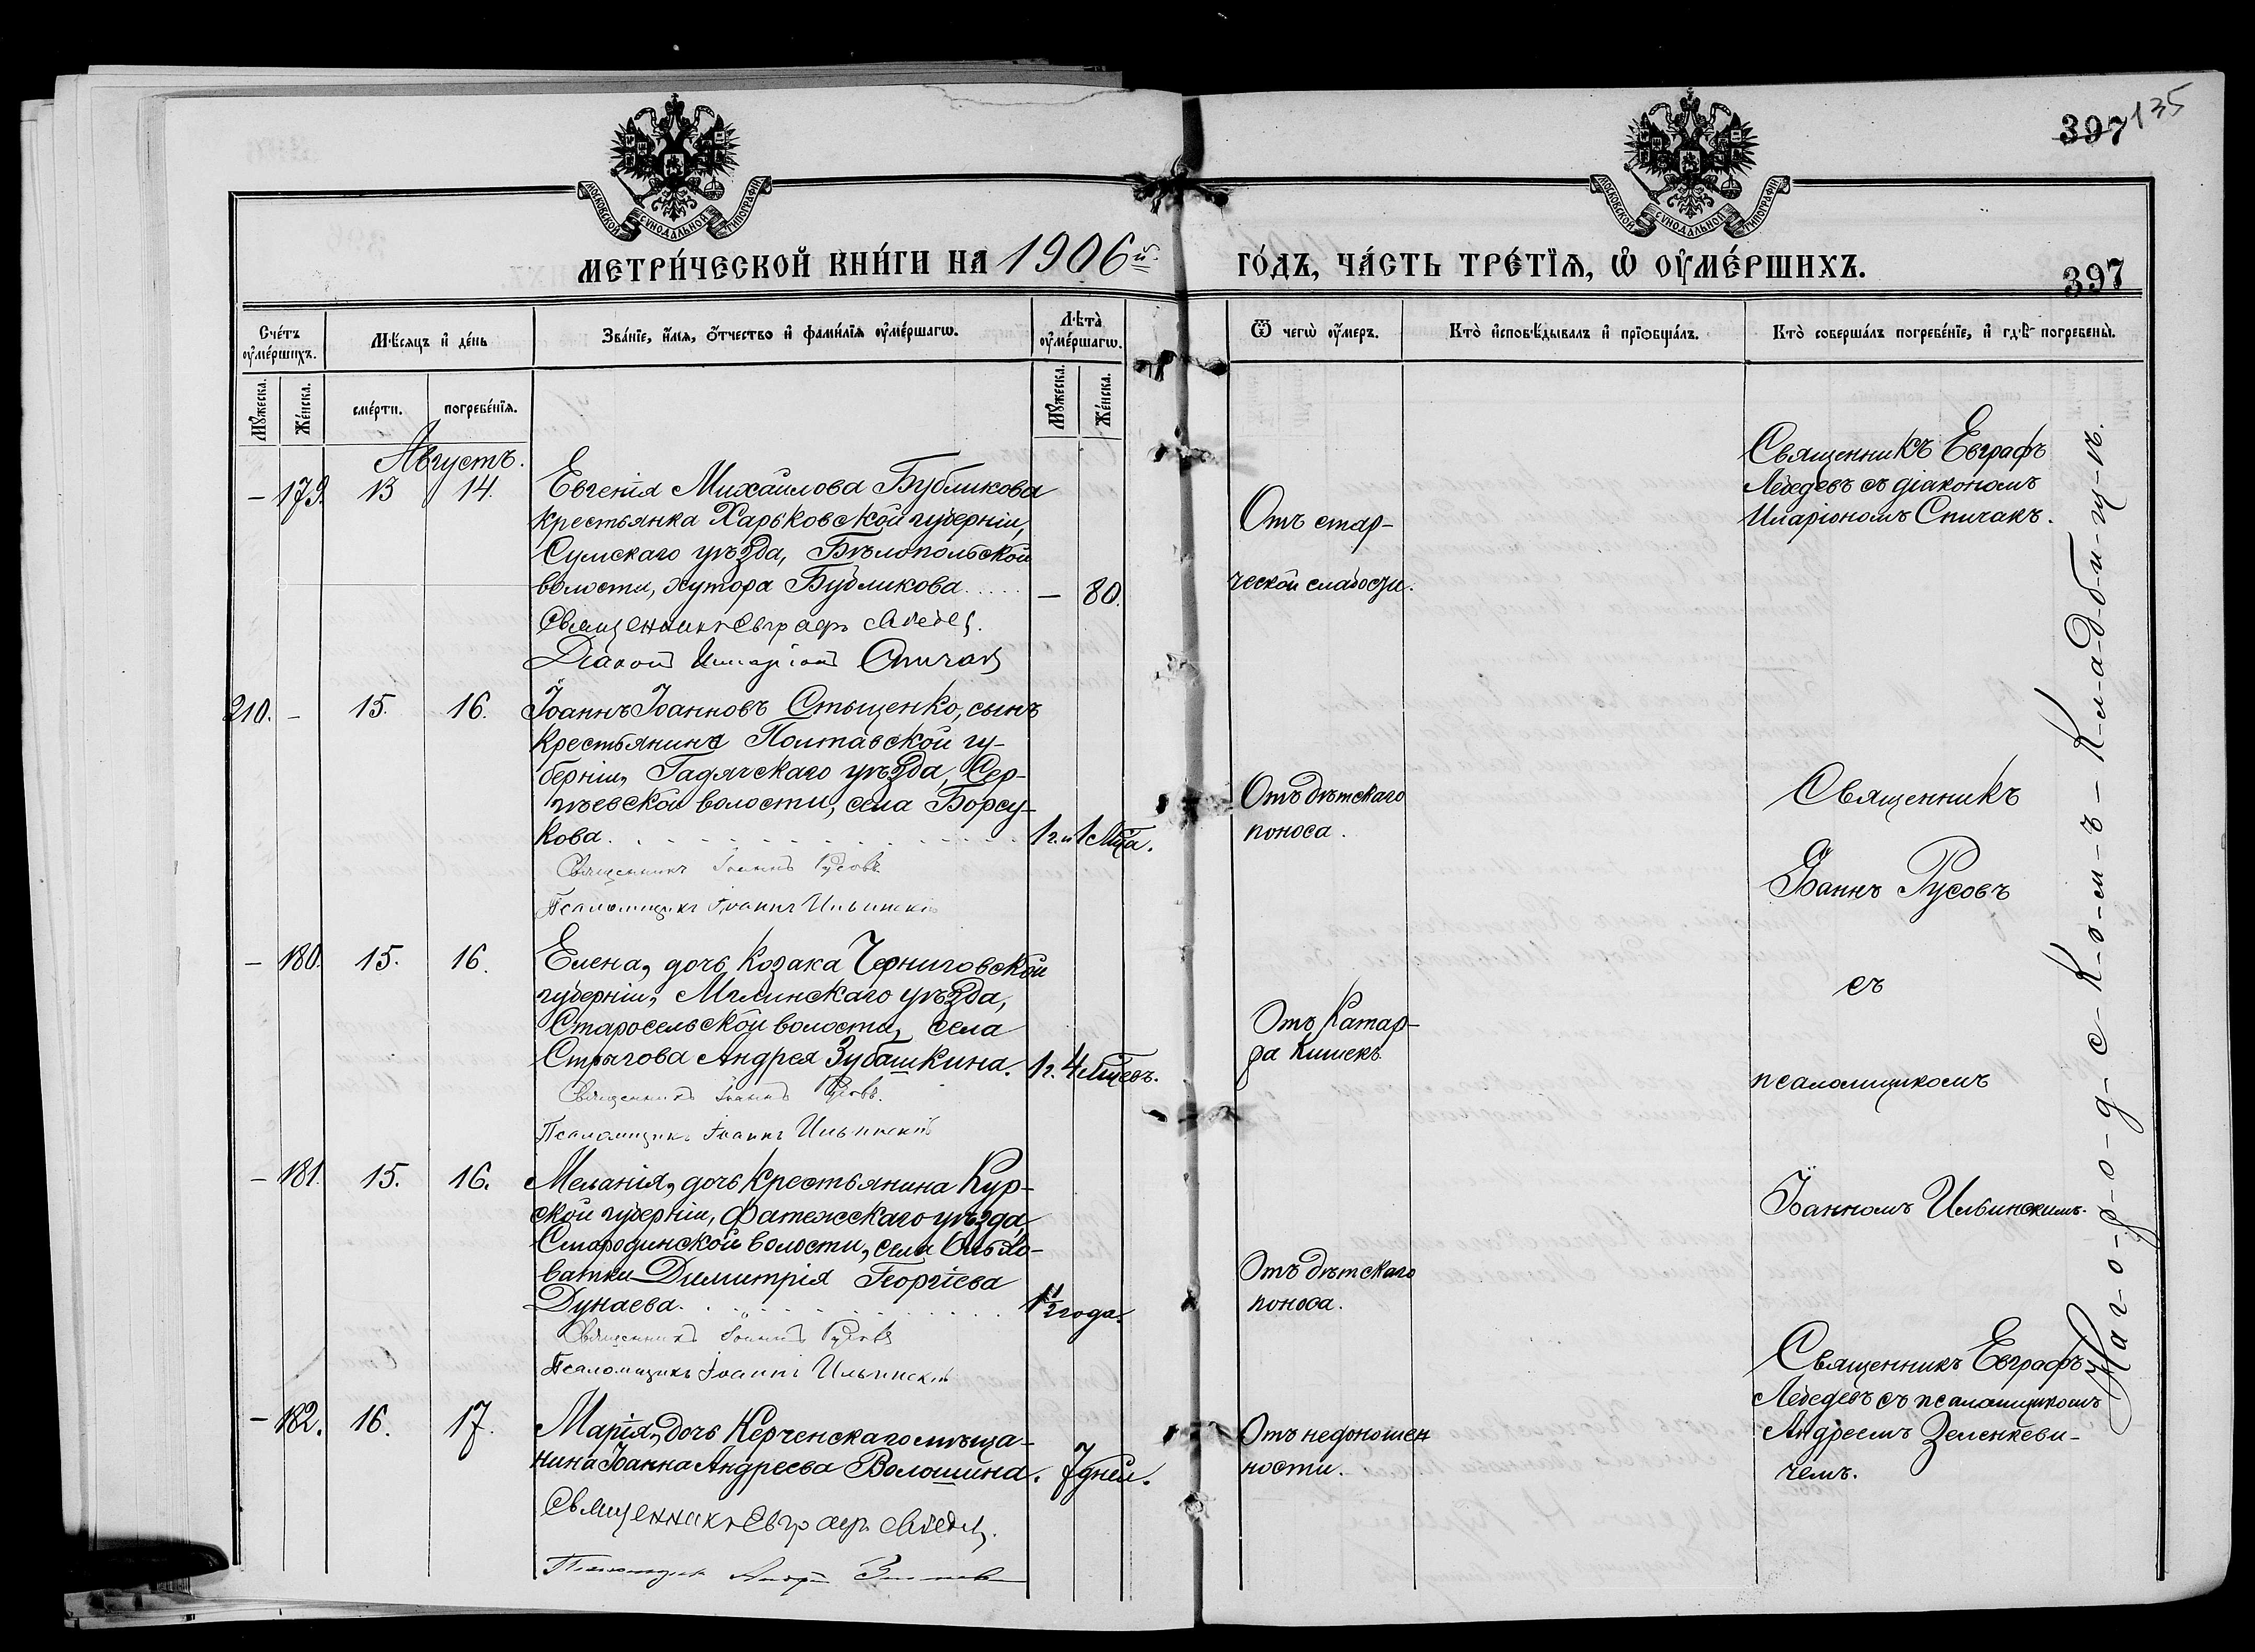 135
397
МОСКОВСКОЙ СѴНОДАЛЬНОЙ ТИПОГРАФІИ
МОСКОВСКОЙ СѴНОДАЛЬНОЙ ТИПОГРАФІИ
МЕТРИ́ЧЕСКОЙ КНИ́ГИ НА 1906й
ГО́ДЪ, ЧА́СТЬ ТРЕ́ТІѦ, Ѡ҆ ОУ҆МЕ́РШИХЪ.
397
Сче́тъ оу҆ме́ршихъ.
Мѣ́сяцъ и҆ де́нь
Зва́нїе, и҆́мя, ѻ҆́тчество и҆ фами́лїя оу҆ме́ршагѡ.
Лѣ̀та оу҆ме́ршагѡ.
Ѿ чегѡ̀ оу҆́меръ.
Кто̀ и҆сповѣ́дывалъ и҆ прїѻбща́лъ.
Кто̀ соверша́лъ погребе́нїе, и҆ гдѣ̀ погребены̀.
Мꙋ́жеска.
Же́нска.
сме́рти.
погребе́нїя.
Мꙋ́жеска.
Же́нска.
Августъ.
– 179. 13 14.
Евгенія Михайлова Бубликова
крестьянка Харьковской губерніи,
Сумскаго уѣзда, Бѣлопольской
волости, хутора Бубликова.....
– 80.
Священникъ Евграфъ Лебедев.
Діакон Иларіон Спичак
Отъ стар-
ческой слабости.
Священникъ Евграфъ
Лебедевъ съ діакономъ
Иларіономъ Спичакъ.
210. – 15. 16.
Іоаннъ Іоанновъ Стыценко, сынъ
крестьянина Полтавской гу-
берніи, Гадячскаго уѣзда, Сер-
гѣевской волости, села Борсу-
кова.
1 г. и 1 мца.
Священникъ Іоаннъ Русовъ
Псаломщикъ Іоаннъ Ильинскій
Отъ дѣтскаго
поноса.
Священникъ
Іоаннъ Русовъ
съ
псаломщикомъ
Іоанномъ Ильинскимъ.
– 180. 15. 16.
Елена, дочь козака Черниговской
губерніи, Мглинскаго уѣзда,
Старосельской волости, села
Стригова Андрея Зубашкина.
1 г. 4 мцевъ.
Священникъ Іоаннъ Русовъ.
Псаломщикъ Іоаннъ Ильинскій
Отъ катар-
ра кишекъ
– 181. 15. 16.
Меланія, дочь крестьянина Кур-
ской губерніи, Фатежскаго уѣзда,
Смородинской волости, села Ольхо-
ватки Димитрія Георгіева
Дунаева.
1½ года.
Священникъ Іоаннъ Русовъ
Псаломщикъ Іоаннъ Ильинскій
Отъ дѣтскаго
поноса.
– 182. 16. 17.
Марія, дочь Керченскаго мѣща-
нина Іоанна Андреева Волошина.
7 дней.
Священникъ Евграфъ Лебедев.
Псаломщик Андрей
Отъ недоношен
ности.
Священникъ Евграфъ
Лебедевъ съ псаломщикомъ
Андреемъ Зеленкеви-
чемъ.
На г-о-р-о-д-с-к-о-м-ъ – К-л-а-д-б-и-щ-ѣ.